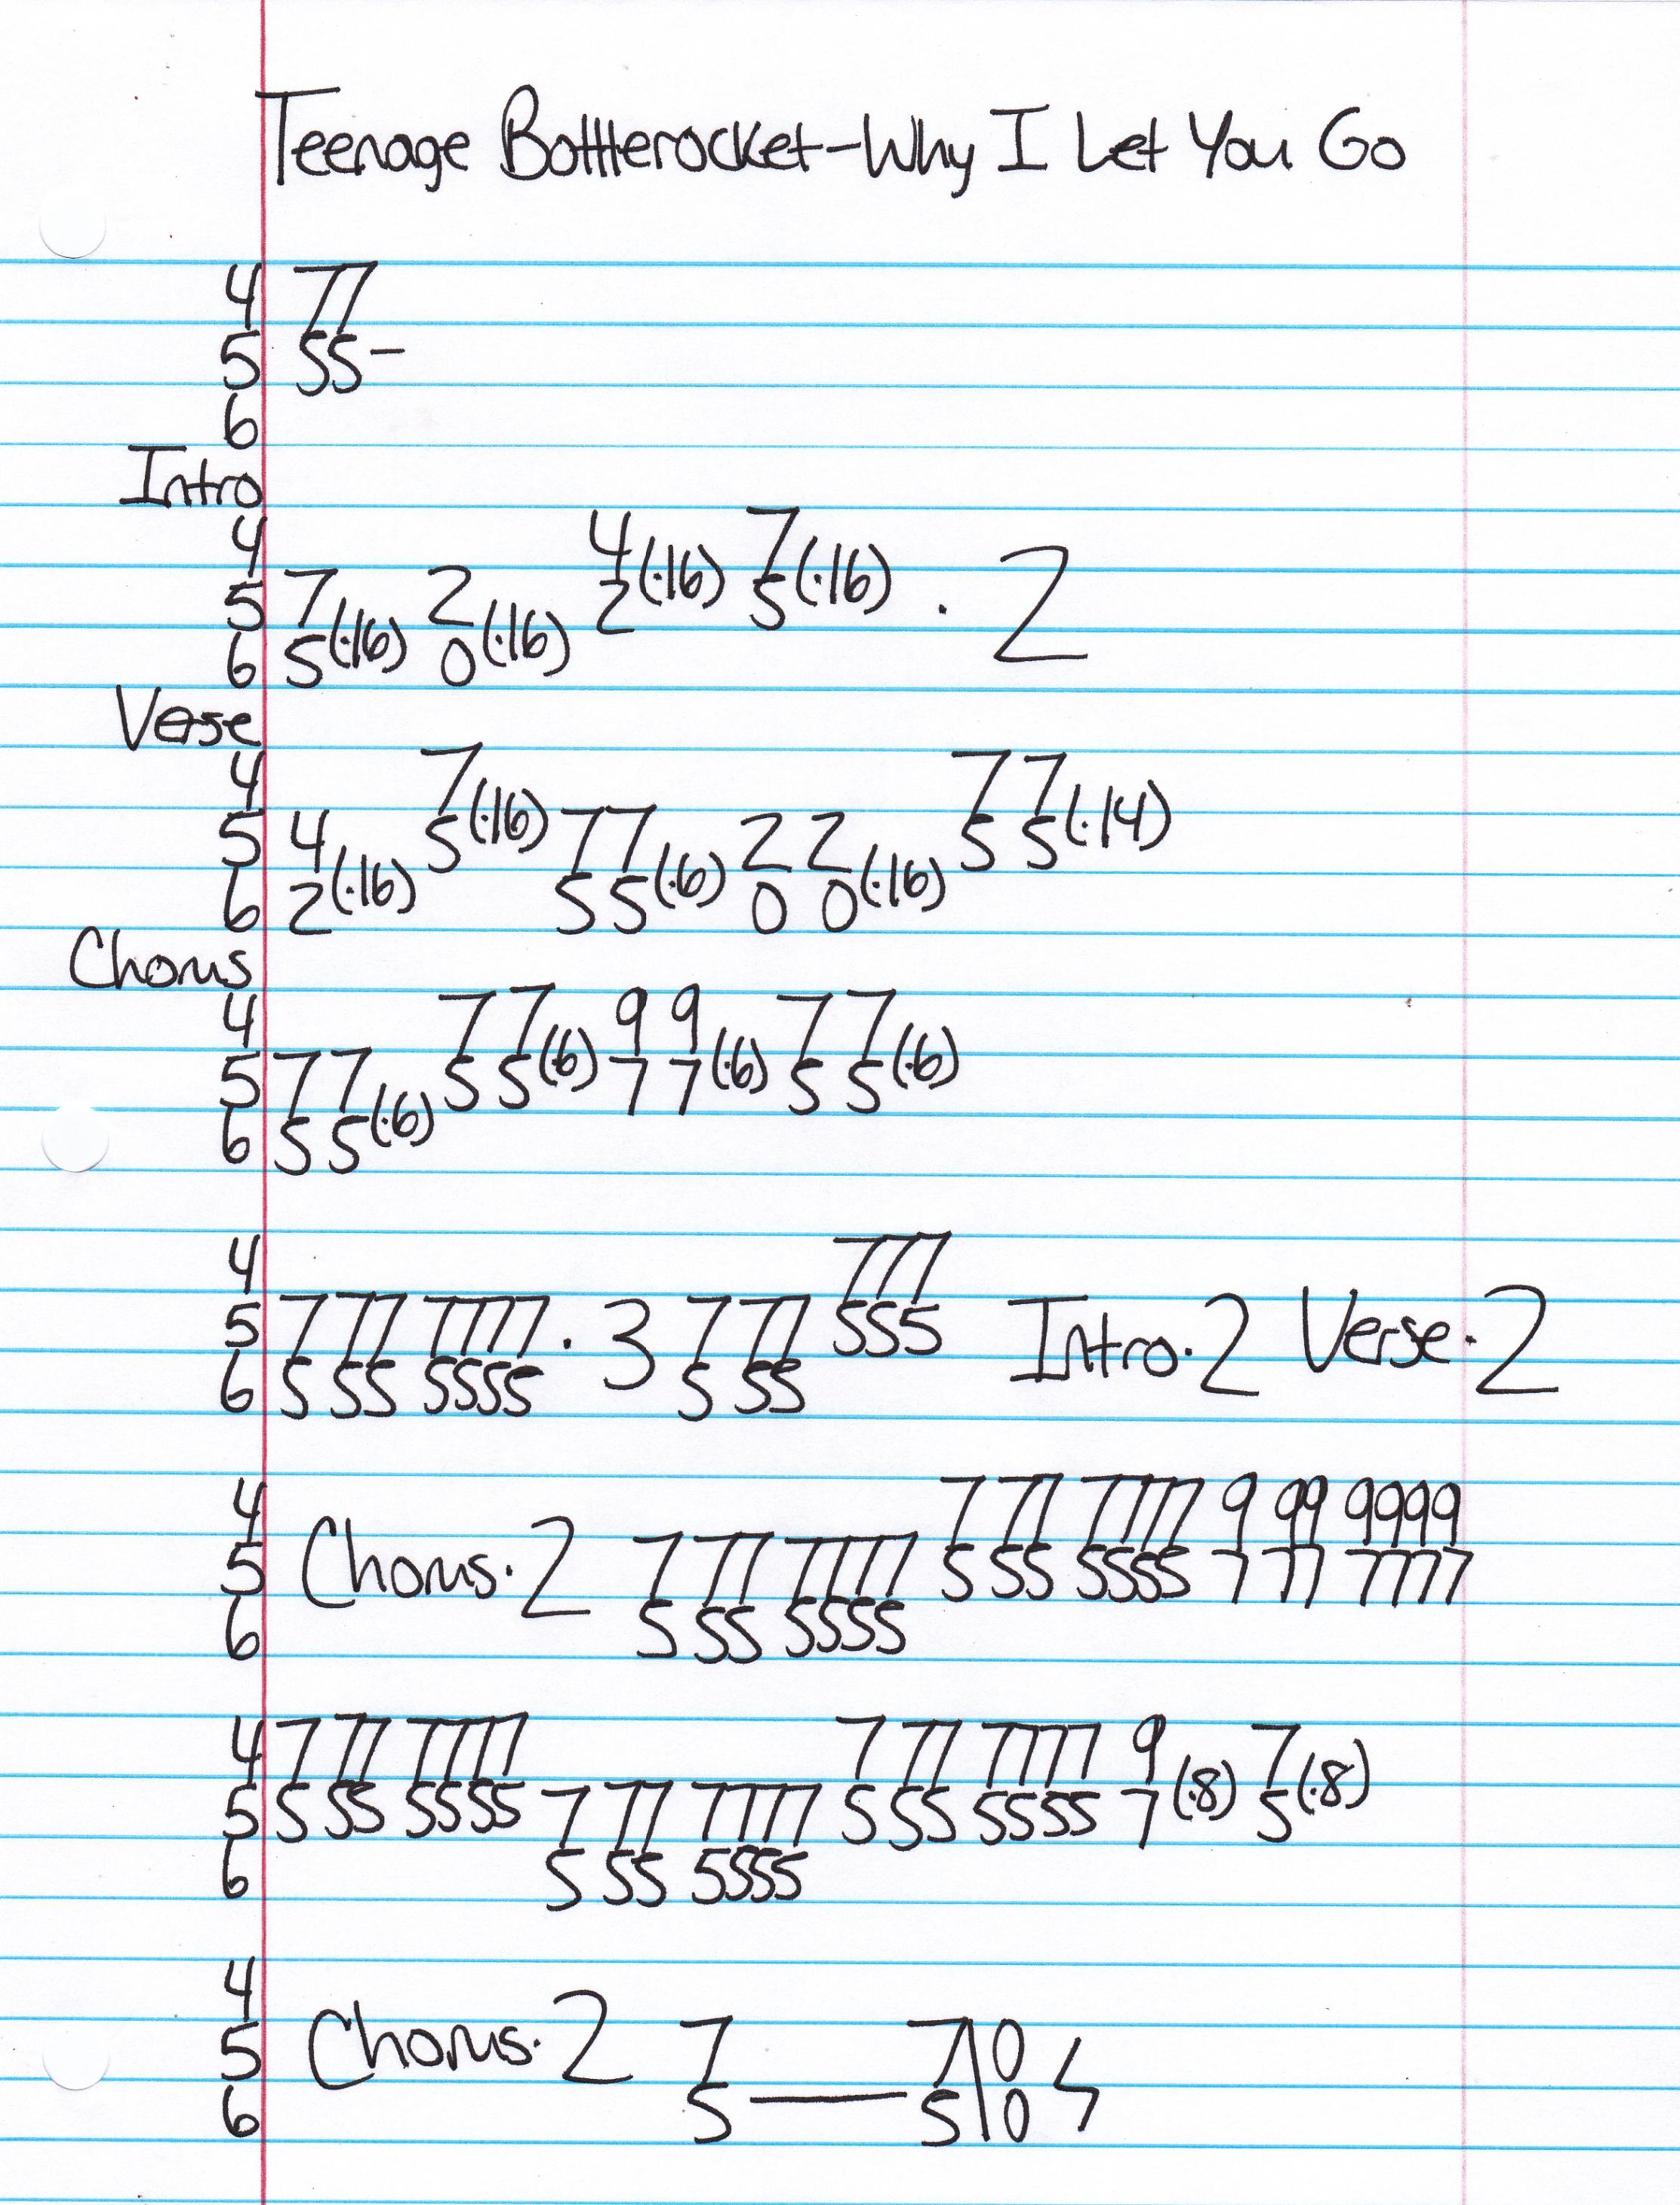 Teenage Bottlerocket-Why I Let You Go
4 77
5 55-
6
Intro
4 4 7
5 7 2 2(·16) 5(·16) · 2
6 5(·16) 0(·16)
Verse
4 7 7 7
5 4 5(·16) 77 2 2 5 5(·14)
6 2(·16) 5 5(·6) 0 0(·16)
Chorus
4 7 7 9 9 7 7
5 77 5 5(·6) 7 7(·6) 5 5(·6)
6 5 5(·6)
4 777
5 7 77 7777 · 3 7 77 555 Intro·2 Verse·2
6 5 55 5555 5 55
4 7 77 7777 9 99 9999
5 Chorus·2 7 77 7777 5 55 5555 7 77 7777
6 5 55 5555
4 7 77 7777 7 77 7777 9 7
5 5 55 5555 7 77 7777 5 55 5555 7(·8) 5(·8)
6 5 55 5555
4
5 Chorus·2 7 7\0
6 5—5\0